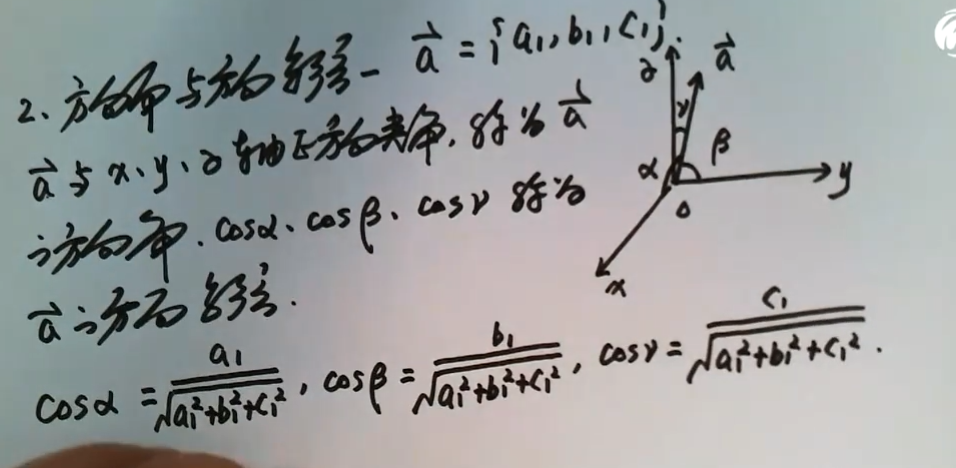 2、方向角与方向余弦— $\vec{a}=\{a_1,b_1,c_1\}$.
$\vec{a}$与x、y、z轴正方向夹角,称为$\vec{a}$
之方向角.cosα、cosβ、cosγ称为
$\vec{a}$之方向余弦.
$\cos\alpha=\frac{a_1}{\sqrt{a_1^2+b_1^2+c_1^2}}$, $\cos\beta=\frac{b_1}{\sqrt{a_1^2+b_1^2+c_1^2}}$, $\cos\gamma=\frac{c_1}{\sqrt{a_1^2+b_1^2+c_1^2}}$.
z $\vec{a}$
γ
α β
y
o
x